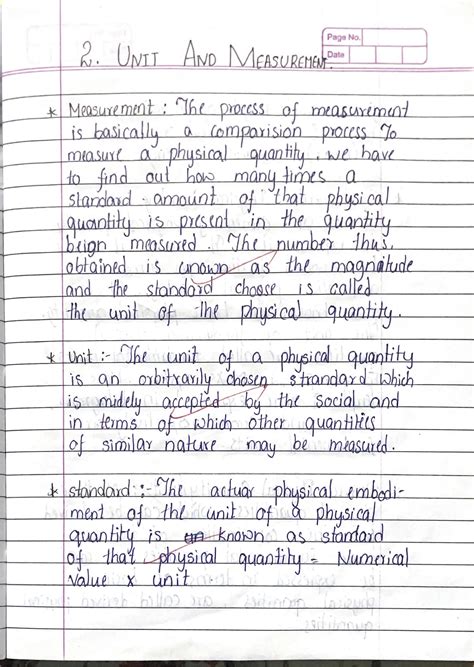 Page No.
Date
2. UNIT AND MEASUREMENT.
* Measurement : The process of measurement
is basically a comparision process To
measure a physical quantity, we have
to find out how many times a
standard amount of that physical
quantity is present in the quantity
beign measured. The number thus,
obtained is unown as the magnitude
and the standard choose is called
the unit of the physical quantity.
* Unit :- The unit of a physical quantity
is an orbitrarily chosen strandard which
is midely accepted by the social and
in terms of which other quantities
of similar nature may be measured.
* standard :- The actuar physical embodi-
ment of the unit of a physical
quantity is known as standard
of that physical quantity = Numerical
Value x unit